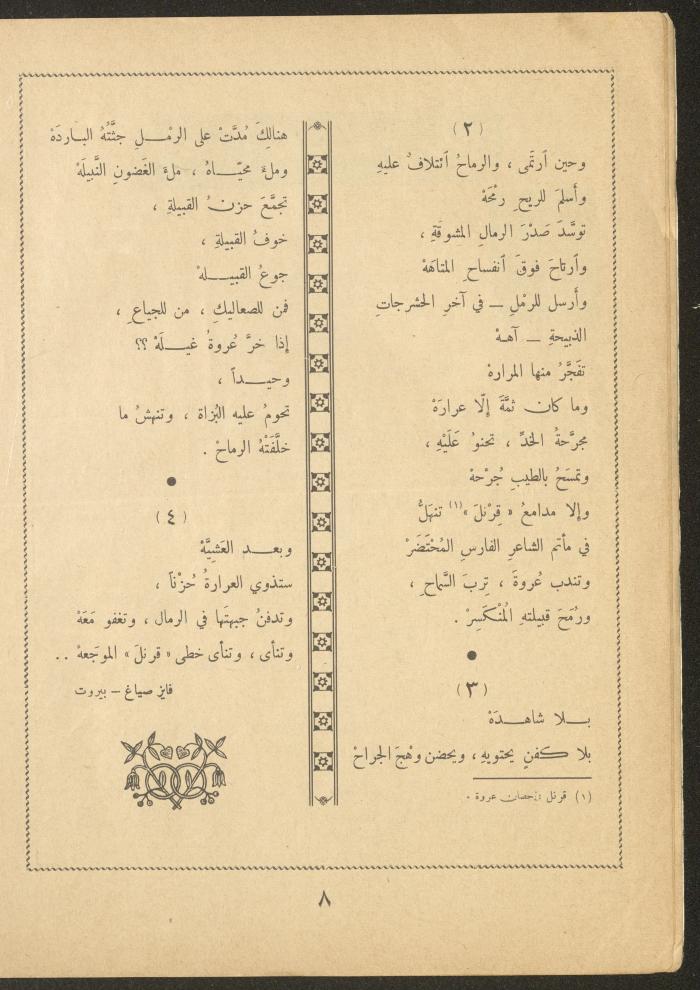 (٢)
وحين ارتمى ، والرماحُ ائتلافٌ عليهِ
وأسلمَ للريحِ رمْحَهْ
توسَّدَ صَدْرَ الرمالِ المشوقَةِ ،
وارتاحَ فوقَ انفساحِ المتاهَهْ
وأرسل للرمْلِ ــ في آخرِ الحشرجاتِ
الذبيحةِ ــ آههْ
تفَجَّرُ منها المرارهْ
وما كان ثمَّةَ إلّا عرارَهْ
مجرَّحةُ الخدِّ ، تحنوُ عَلَيْهِ ،
وتمسَحُ بالطيبِ جُرْحهْ
وإلا مدامعُ « قِرْنلَ » (١) تنهَلُّ
في مأتم الشاعرِ الفارسِ المُحْتَضَرْ
وتندب عُروةَ ، تِربَ السَّماحِ ،
ورُمَحَ قبيلتهِ المُنْكَسِرْ .
●
(٣)
بـــلا شاهـــدَهْ
بلا كفنٍ يحتويهِ ، ويحضن وهْجَ الجراحْ
(١) قرنل : حصان عروة .
هنالِكَ مُدَّتْ على الرمْــلِ جثَّتُهُ البـاردَهْ
وملءَ محيّـــاهُ ، ملءَ الغَضونِ النَّبيلَهْ
تجمَّعَ حزنُ القبيلةِ ،
خوفُ القبيلةِ ،
جوعُ القبيــــلهْ
فمن للصعاليكِ ، من للجياعِ ،
إذا خرَّ عُروةُ غيــلَهْ ؟؟
وحيــــداً ،
تحومُ عليه البُزاة ، وتنهشُ ما
خلَّفَتْهُ الرماحْ .
●
(٤)
وبعـــد العَشيَّهْ
ستذوي العرارةُ حُزْناً ،
وتدفنُ جبهتَها في الرمال ، وتغفو مَعَهْ
وتنأى ، وتنأى خطى « قرنلَ » الموجَعهْ ..
فايز صياغ – بيروت
٨